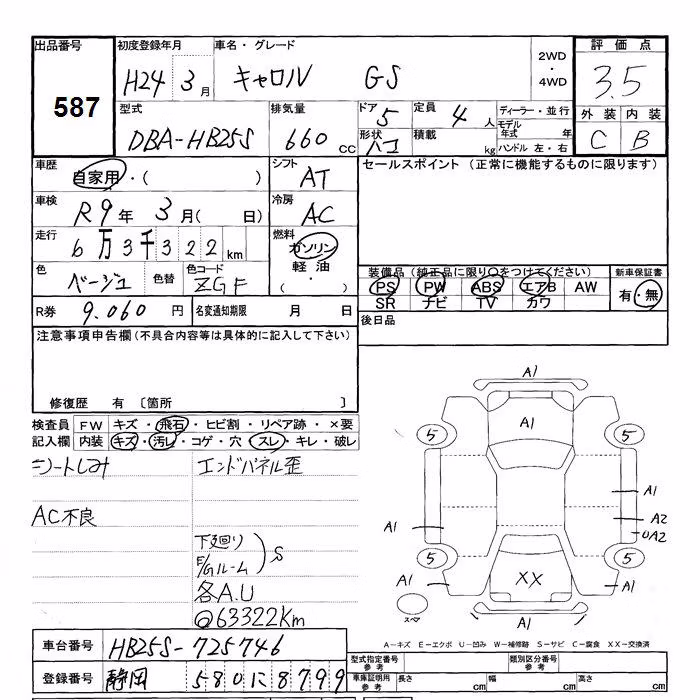 出品番号 初度登録年月 車名・グレード 2WD・4WD 評価点
587 H24 3月 キャロル GS 3.5
型式 排気量 ドア 定員 ディーラー・並行 外装 内装
DBA-HB25S 660cc 5 4人 モデル年式 年 C B
形状 ハコ 積載 kg ハンドル 左・右
車歴 自家用・( ) シフト AT セールスポイント (正常に機能するものに限ります)
車検 R9年 3月( 日) 冷房 AC
走行 6万3千322km 燃料 ガソリン・軽油・( )
色 ベージュ 色替 色コード ZGF
装備品 (純正品に限り○をつけてください) 新車保証書
PS PW ABS エアB AW 有・無
SR ナビ TV カワ
R券 9,060円 名変通知期限 月 日 後日品
注意事項申告欄(不具合内容等は具体的に記入して下さい)
修復歴 有 〔箇所 〕
検査員 FW キズ・飛石・ヒビ割・リペア跡・×要
記入欄 内装 キズ・汚レ・コゲ・穴・スレ・キレ・破レ
シートしみ エンドパネル歪
AC不良
下廻り
F/Gルーム )S
各A.U
◎63322Km
A1
A1
5 5
A1
A1 A2
UA2
5 5
A1 XX A1
スペア A1
A-キズ E-エクボ U-凹み W-補修跡 S-サビ C-腐食 XX-交換済
車台番号 HB25S-725746
型式指定番号 参考 類別区分番号 参考
登録番号 静岡 580 に 8799
車庫証明用 参考 長さ cm 幅 cm 高さ cm